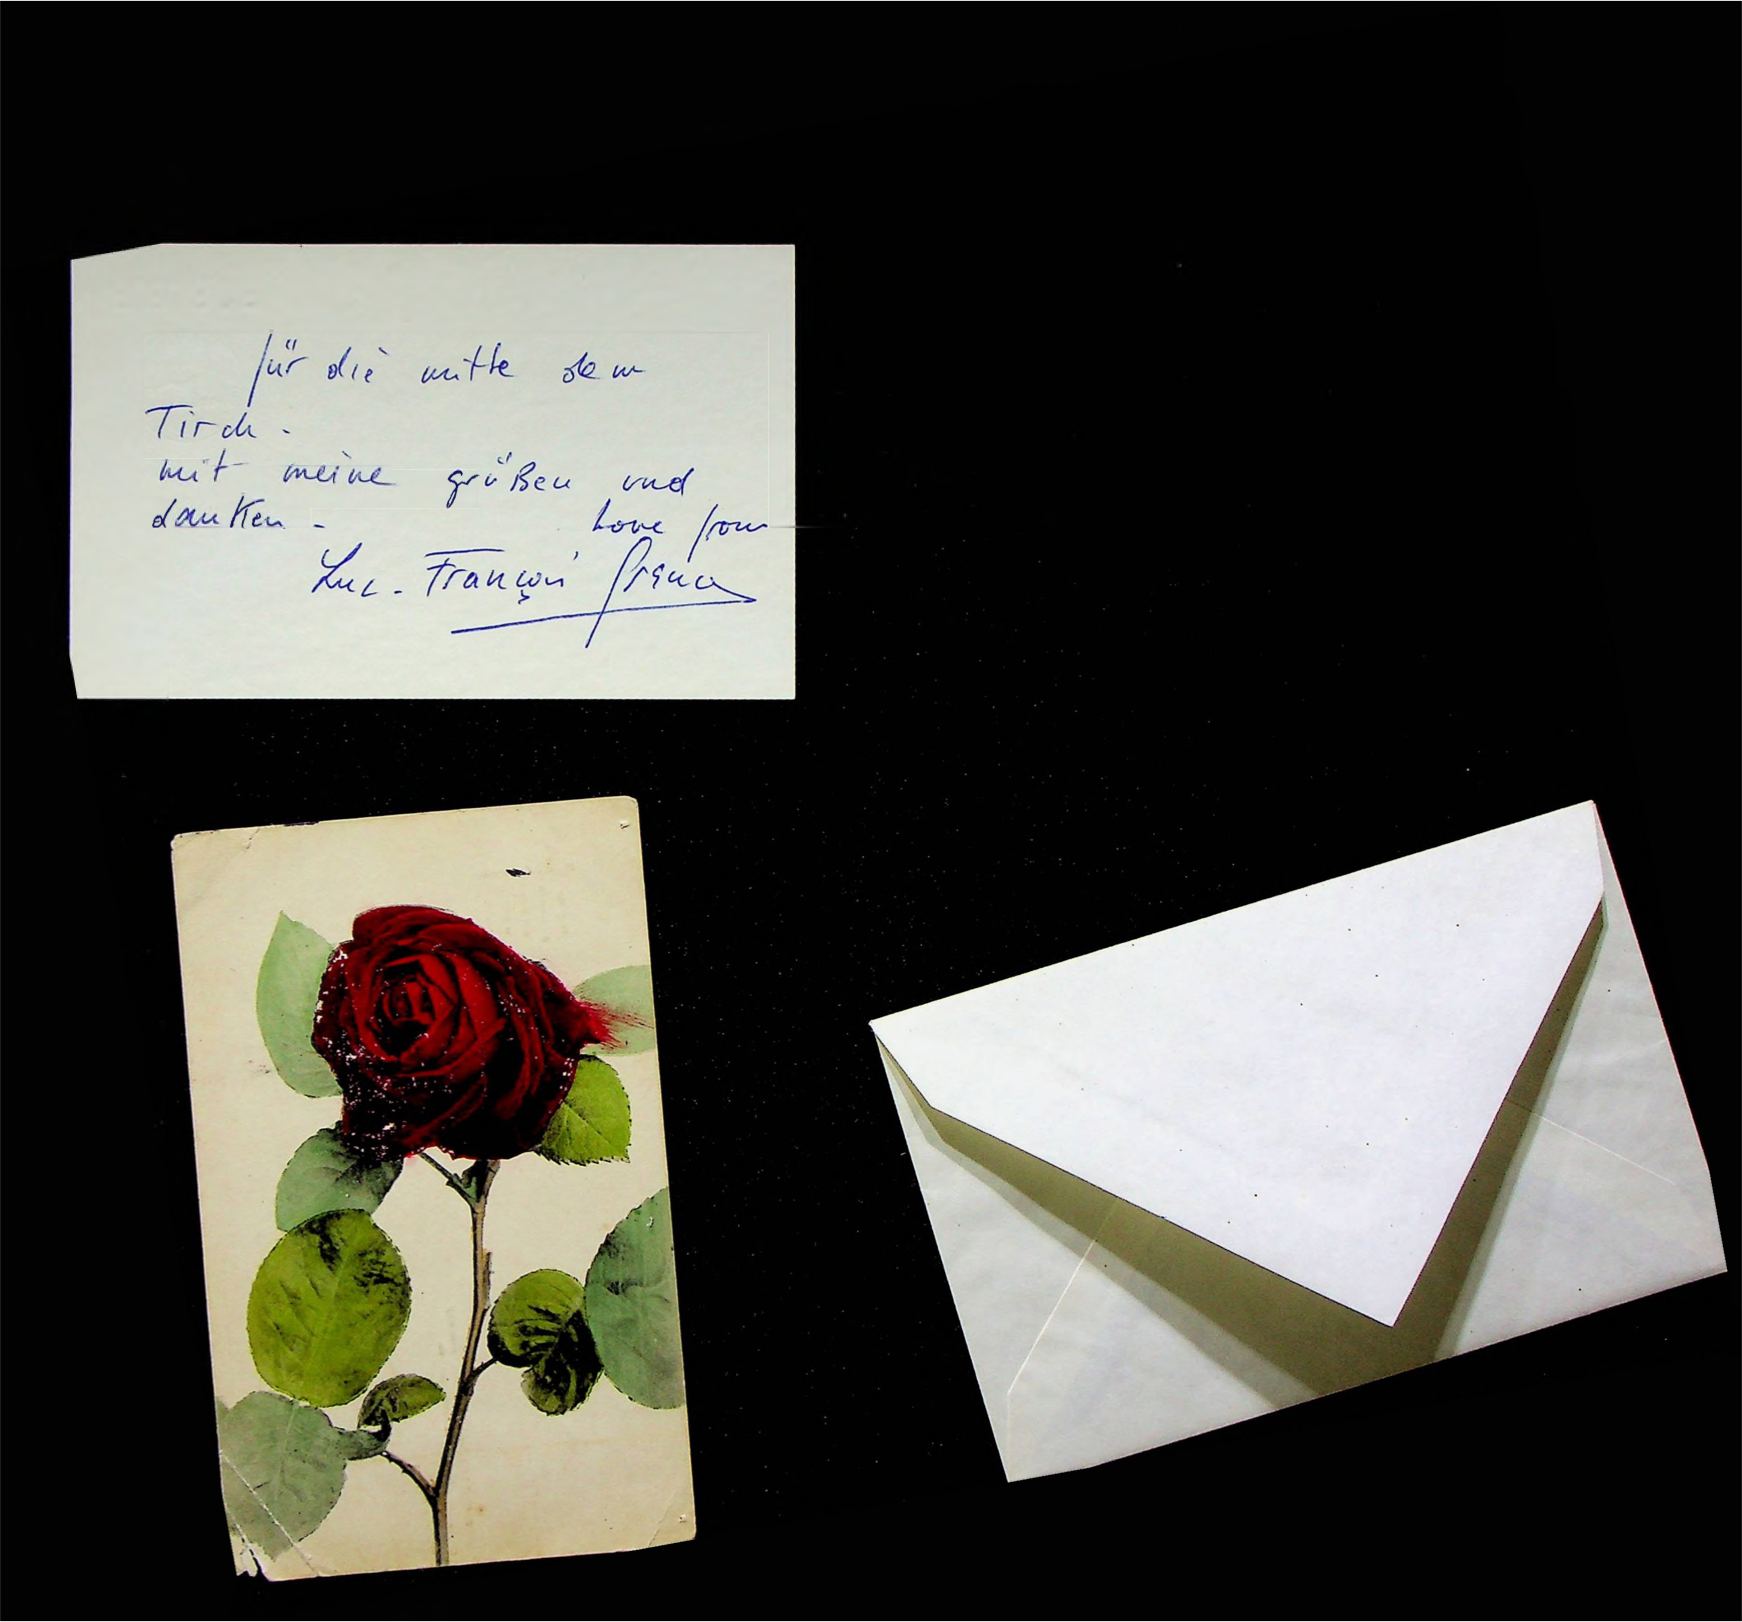 für die mitte dem
Tisch.
mit meine grüßen und
danken. Love from
Luc-François